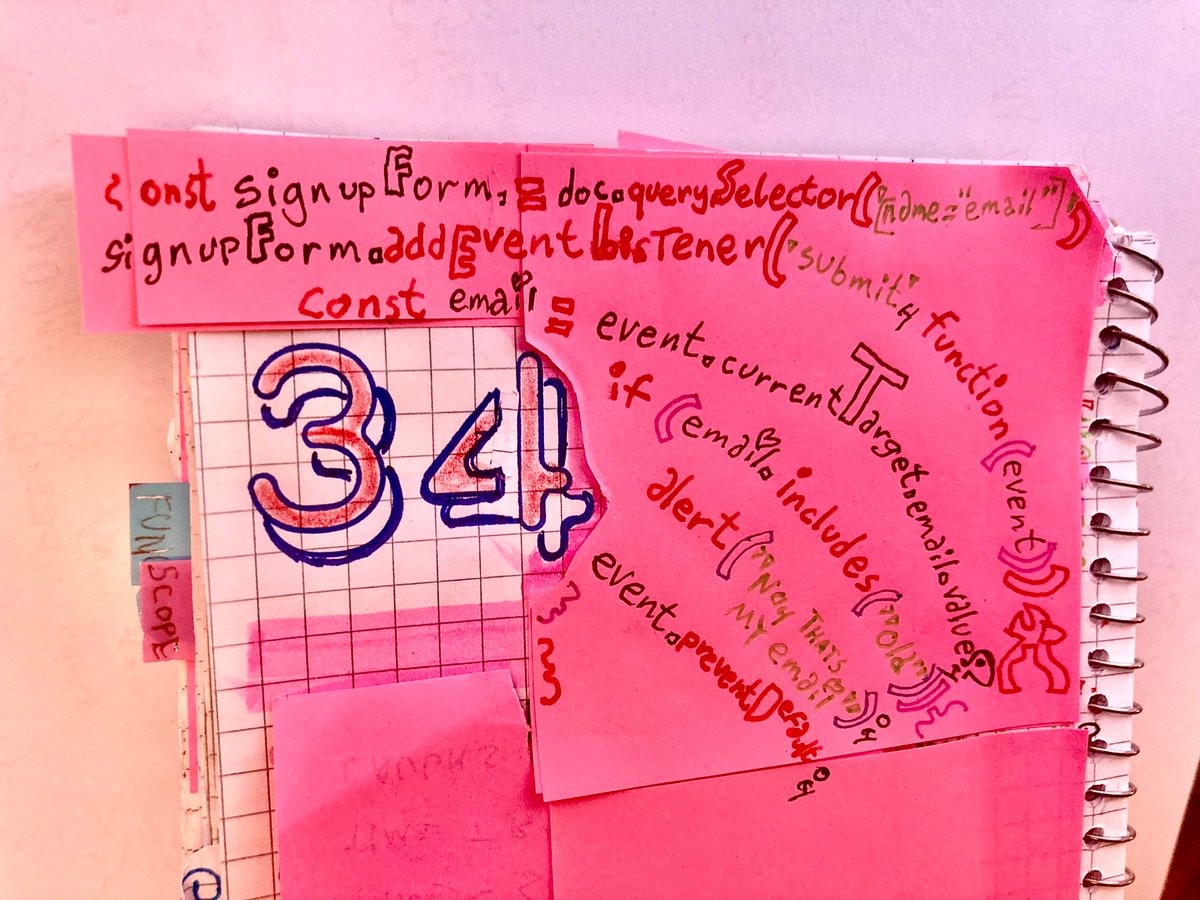 const signupForm = doc.querySelector(['name="email"']);
signupForm.addEventListener("submit", function(event){
const email = event.currentTarget.email.value;
if (email.includes("old")){
alert("Nay THATS MY email");
event.preventDefault;
}
}
34
FUN
SCOPE